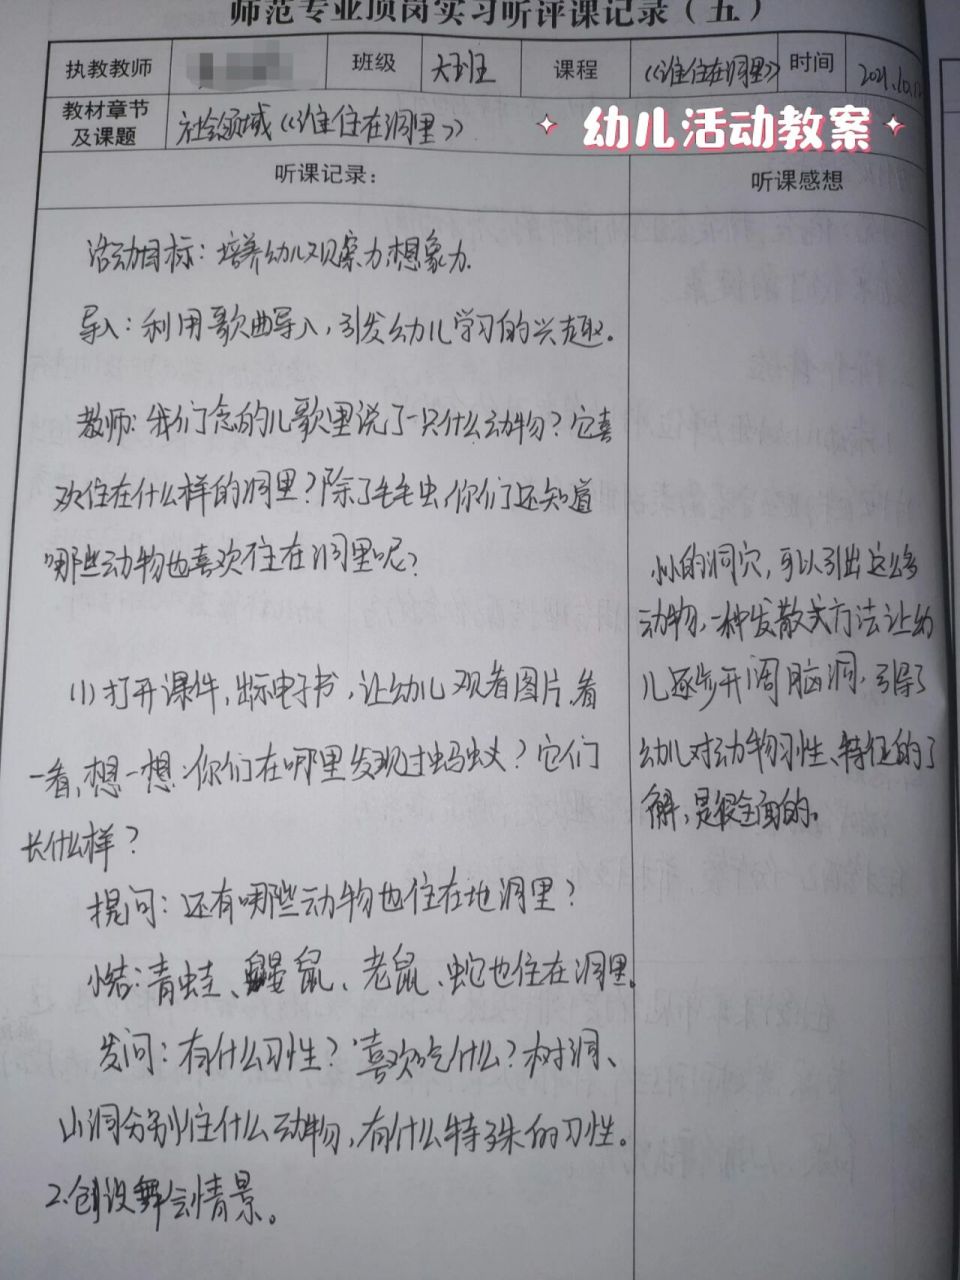 师范专业顶岗实习听评课记录（五）
执教教师 班级 大班 课程 《谁住在洞里》 时间 2021.10.12
教材章节及课题 社会领域《谁住在洞里》
幼儿活动教案
听课记录：
听课感想
活动目标：培养幼儿观察力，想象力.
导入：利用歌曲导入，引发幼儿学习的兴趣。
教师：我们念的儿歌里说了一只什么动物？它喜
欢住在什么样的洞里？除了毛毛虫，你们还知道
哪些动物也喜欢住在洞里呢？
(1)打开课件，出示电子书，让幼儿观看图片，看
一看，想一想：你们在哪里发现过蚂蚁？它们
长什么样？
提问：还有哪些动物也住在地洞里？
小结：青蛙、鼹鼠、老鼠、蛇也住在洞里。
发问：有什么习性？喜欢吃什么？树洞、
山洞分别住什么动物，有什么特殊的习性。
2.创设舞会情景。
小小的洞穴，可以引出这么多
动物，一种发散式方法让幼
儿逐步开阔脑洞，引导了
幼儿对动物习性、特征的了
解，是很全面的。